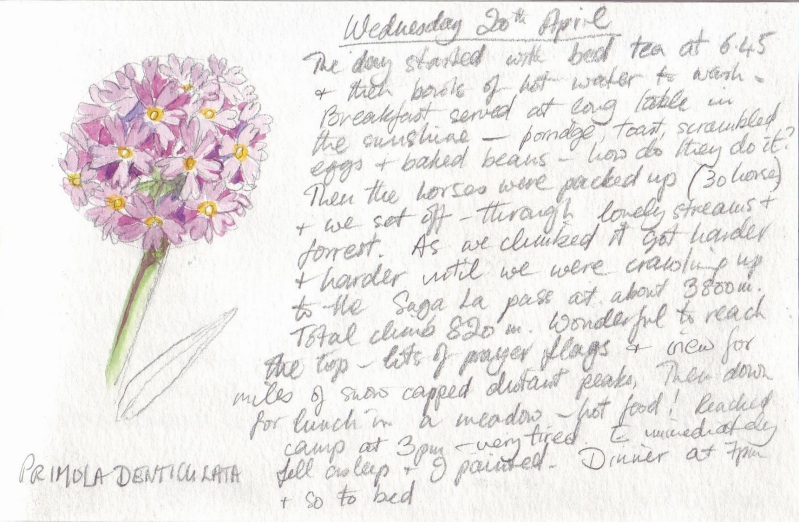 Wednesday 20th April
The day started with bed tea at 6.45
+ then bowls of hot water to wash.
Breakfast served at long table in
the sunshine – porridge, toast, scrambled
eggs + baked beans – how do they do it?
Then the horses were packed up (30 horses)
+ we set off – through lovely streams +
forrest. As we climbed it got harder
+ harder until we were crawling up
to the Saga La pass at about 3800m.
Total climb 820m. Wonderful to reach
the top – lots of prayer flags + view for
miles of snow capped distant peaks. Then down
for lunch in a meadow – hot food! Reached
camp at 3pm – very tired. E immediately
fell asleep + I painted. Dinner at 7pm
+ so to bed
PRIMULA DENTICULATA